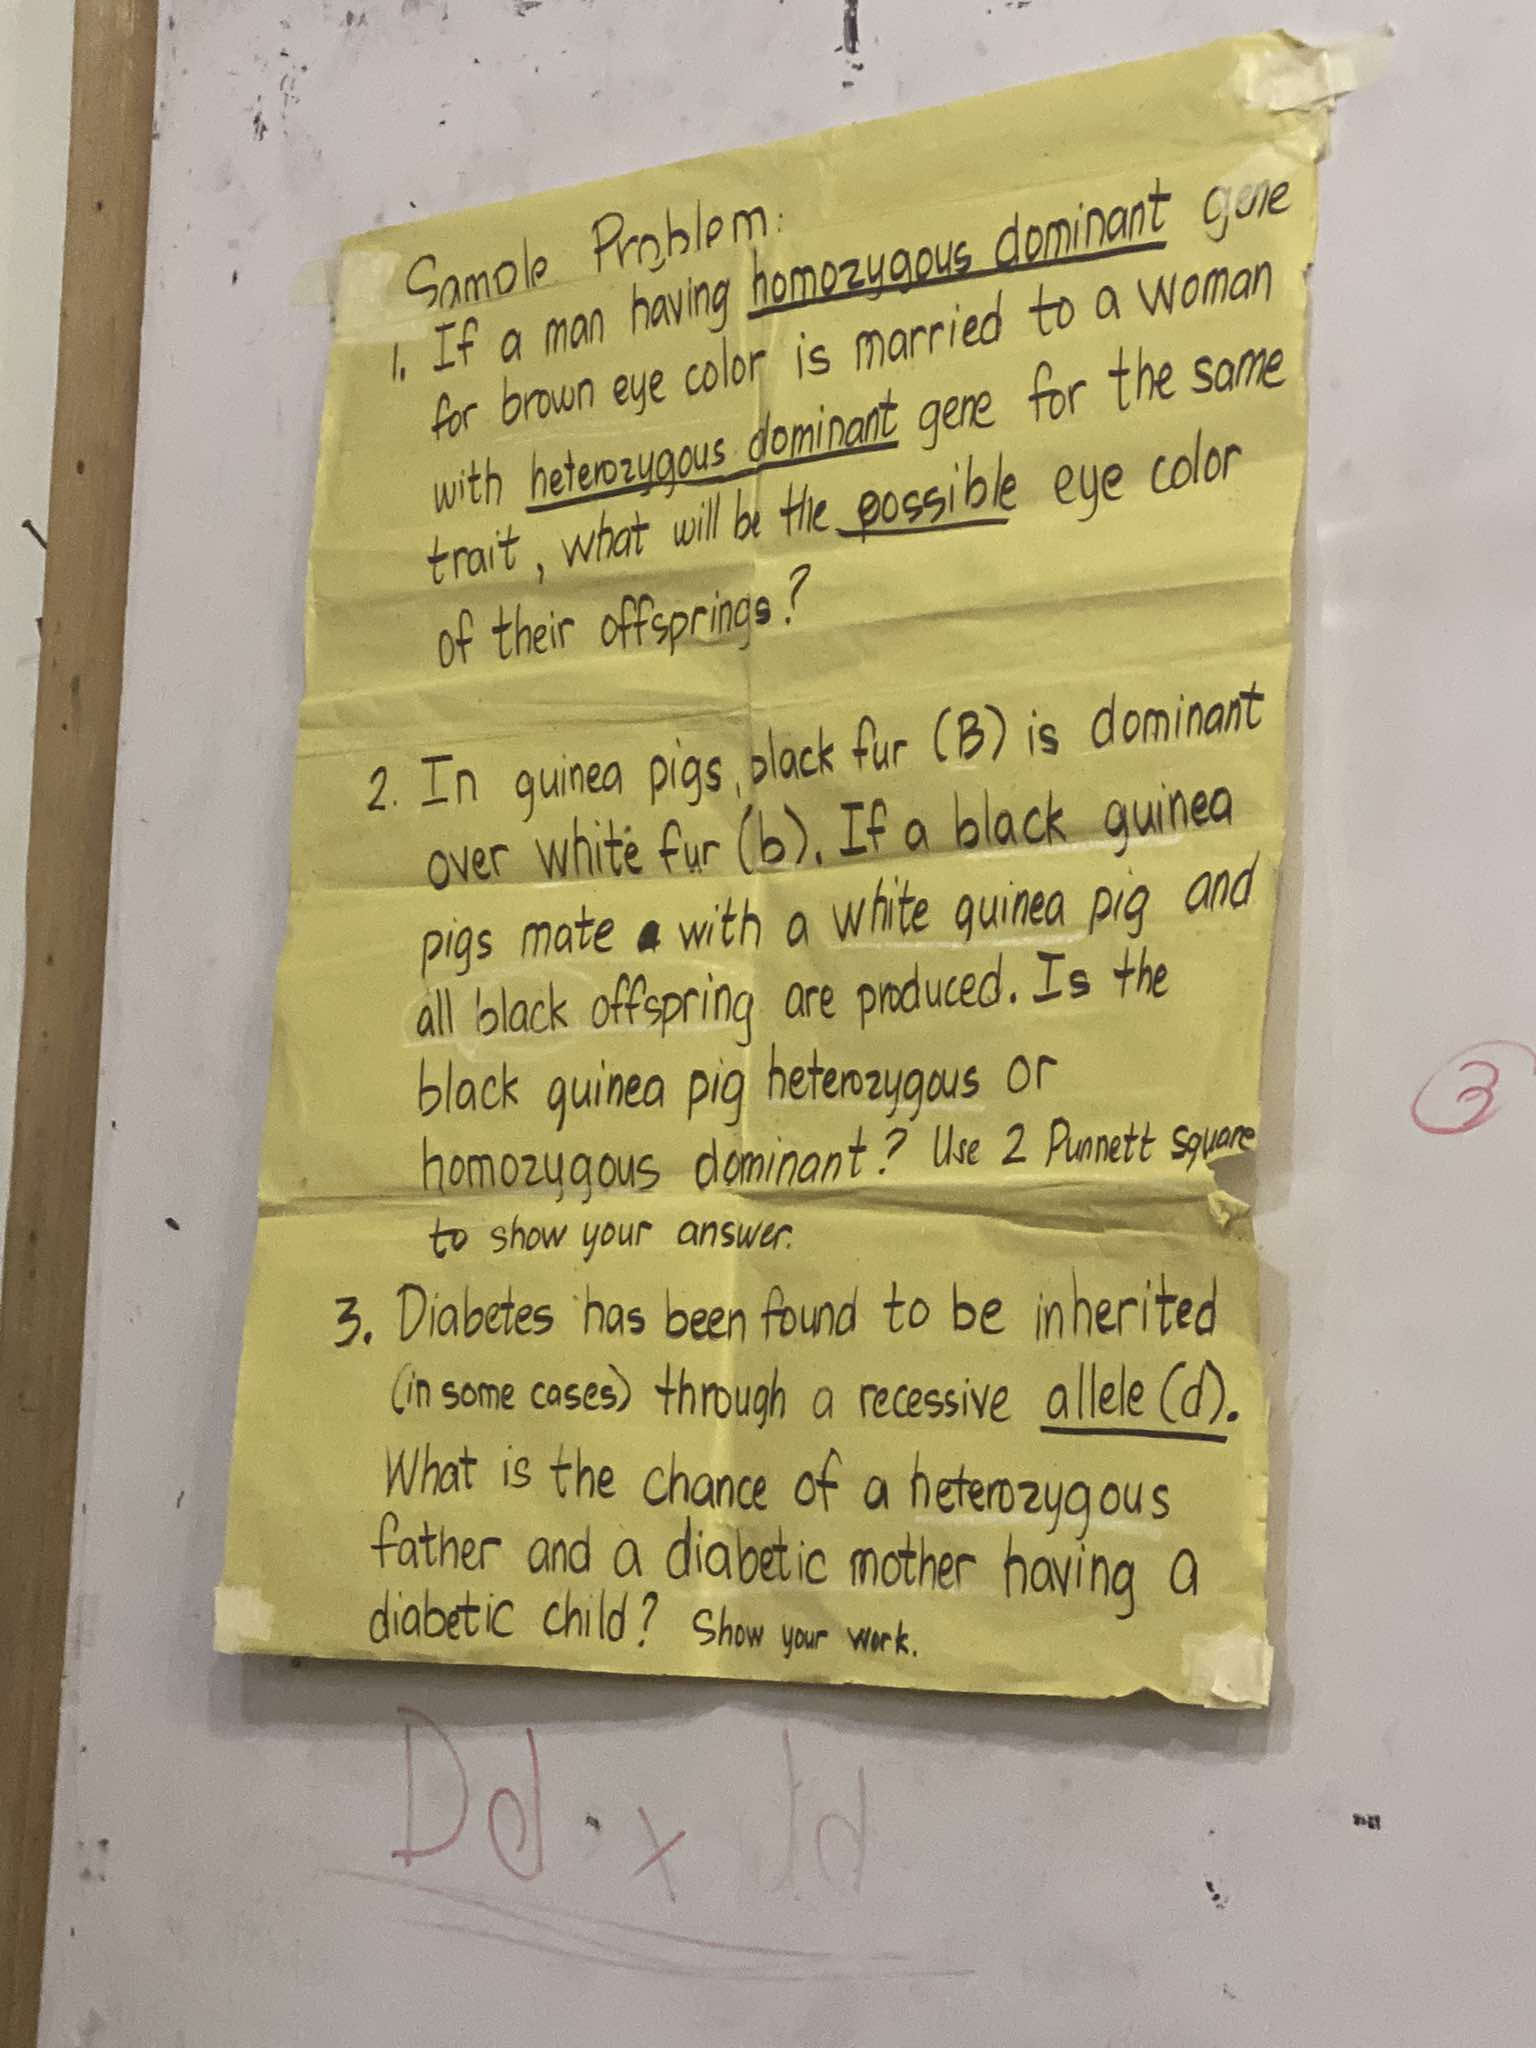 Sample Problem:
1. If a man having homozygous dominant gene
for brown eye color is married to a woman
with heterozygous dominant gene for the same
trait, what will be the possible eye color
of their offsprings?
2. In guinea pigs, black fur (B) is dominant
over white fur (b). If a black guinea
pigs mate with a white guinea pig and
all black offspring are produced. Is the
black guinea pig heterozygous or
homozygous dominant? Use 2 Punnett square
to show your answer.
3. Diabetes has been found to be inherited
(in some cases) through a recessive allele (d).
What is the chance of a heterozygous
father and a diabetic mother having a
diabetic child? Show your work.
3
Dd x dd